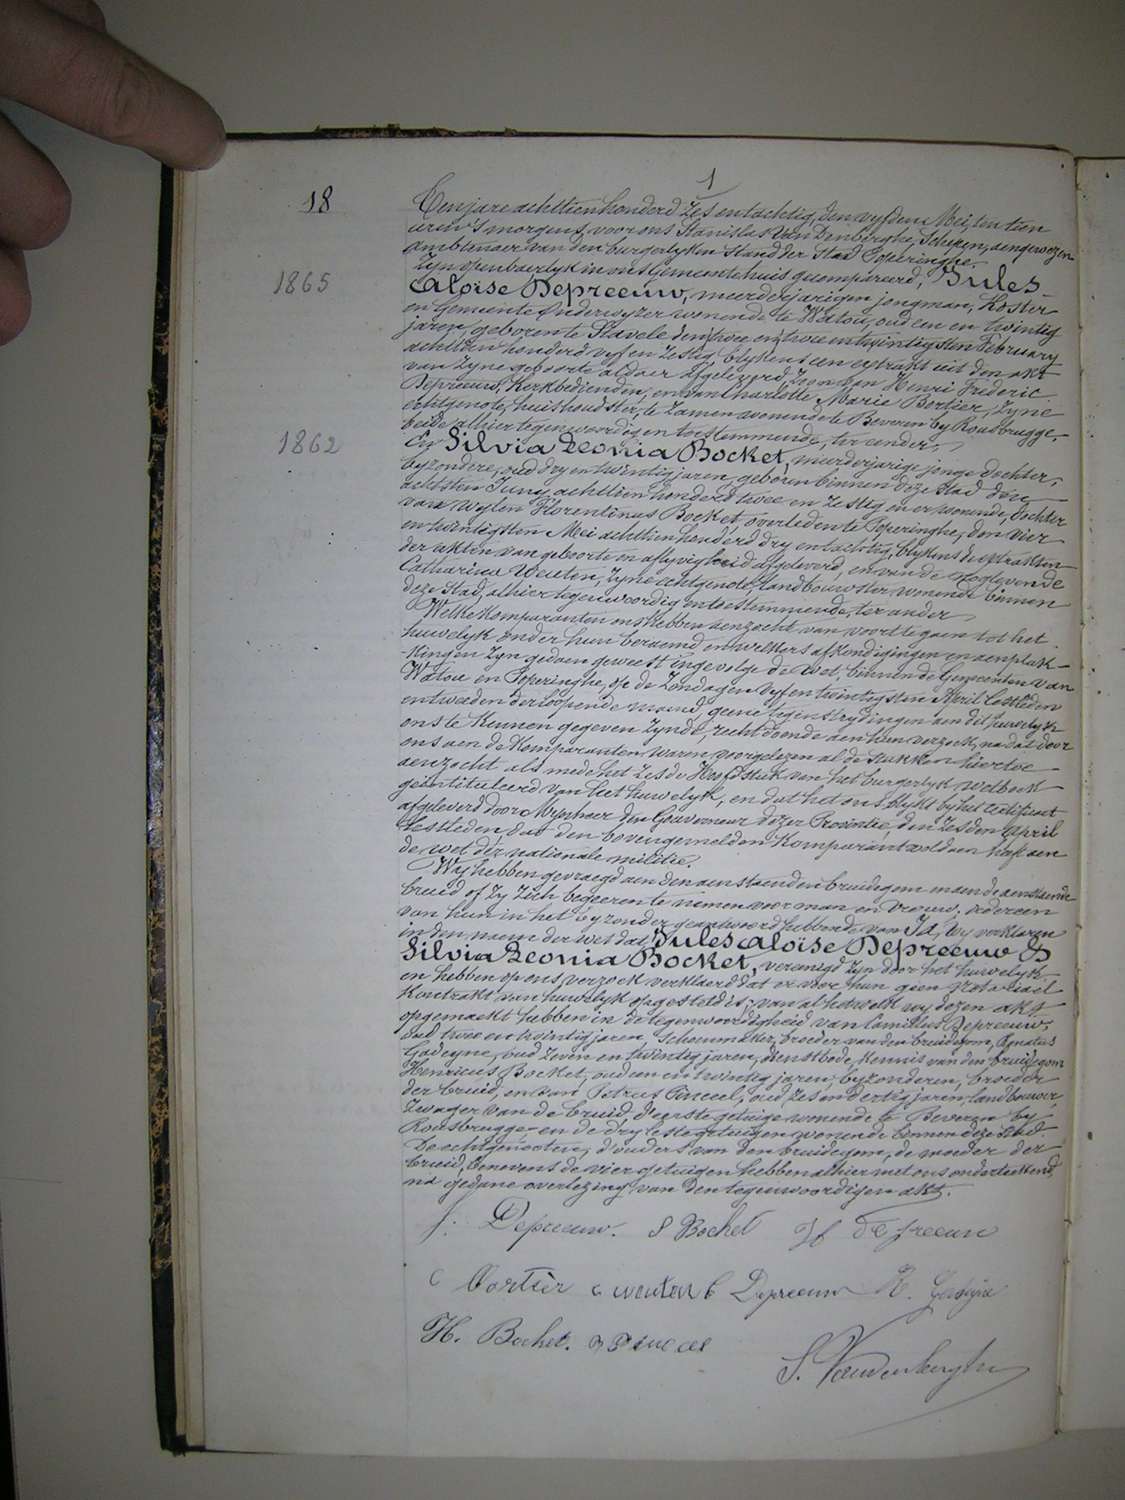 1
18
Ten jare achttien honderd zes en tachtig, den vyfden Mei, ten tien
ure 's morgens, voor ons Stanislas Van Denberghe, Schepen, aengewezen
Amblenaer van den burgerlyken Stand der Stad Poperinghe
zyn openbaerlyk in ons Gemeentehuis gecompareerd, Jules
1865
Aloïse Depreeuw, meerderjarigen jongman, Koster
en Gemeente Onderwyzer wonende te Watou, oud een en twintig
jaren, geboren te Stavele den twee en twintigsten February
achttien honderd vyf en zestig, blykens een extrakt uit den akt
van zyne geboorte aldaer afgeleverd, Zoon van Henri Frideric
Depreeuw, Kerkbedienden, en van Charlotte Marie Bortier, zyne
echtgenote, huishoudster, te zamen wonende te Beveren by Rousbrugge,
beide alhier tegenwoordig en toestemmende, ter eender,
1862
En Silvia Leonia Bocket, meerderjarige jonge dochter,
byzondere, oud dry en twintig jaren, geboren binnen deze Stad den
achtsten Juny achttien honderd twee en zestig en er wonende, dochter
van wylen Florentinus Bocket, overleden te Poperinghe, den vier
en twintigsten Mei achttien honderd dry en tachtig, blykens de extrakten
der akten van geboorte en aflyvigheid afgeleverd, en van de noglevende
Catharina Wenten, zyne echtgenote, Landbouwster wonende binnen
deze Stad, alhier tegenwoordig en toestemmende, ter ander,
Welke Komparanten ons hebben aenzocht van voort te gaen tot het
huwelyk onder hun beraemd en welkers afkondigingen en aenplak-
-kingen zyn gedaen geweest ingevolge de wet, binnen de Gemeenten van
Watou en Poperinghe, op de Zondagen vyf en twintigsten April lestleden
en tweeden der loopende maend, geene tegenstrydingen aen dit huwelyk
ons te kennen gegeven zynde, recht doende aen hun verzoek, na dat door
ons aen de Komparanten waren voorgelezen al de Stukken hiertoe
aenzocht als mede het zesde Hoofdstuk van het burgerlyk wetboek
geïntituleerd van het huwelyk, en dat het ons blykt by het certificaet
afgeleverd door Mynheer den Gouverneur dezer Provintie, den zesden April
lestleden, dat den bovengemelden Komparant voldaen heeft aen
de wet der nationale militie.
Wy hebben gevraegd aen den aenstaenden bruidegom en aen de aenstaende
bruid of zy zich begeeren te nemen voor man en vrouw, iedereen
van hun in het byzonder geantwoord hebbende van Ja, wy verklaren
in den naem der wet dat Jules Aloïse Depreeuw &
Silvia Leonia Bocket, vereenigd zyn door het huwelyk
en hebben op ons verzoek verklaerd dat er voor hun geen notariael
Kontrakt van huwelyk opgesteld is; van al hetwelk wy dezen akt
opgemaekt hebben in de tegenwoordigheid van Camillus Depreeuw,
oud twee en twintig jaren, Schoenmaker, broeder van den bruidegom,
oud zeven en twintig jaren, dienstbode, kennis van den bruidegom
Henricus Bocket, oud een en twintig jaren, byzonderen, broeder
der bruid, en van Petrus oud zes en dertig jaren, landbouwer,
zwager van de bruid, d'eerste getuige wonende te Beveren by
Rousbrugge en de dry leste getuigen wonende binnen deze Stad.
De echtgenooten, d'ouders van den bruidegom, de moeder der
bruid, benevens de vier getuigen hebben alhier met ons onderteekend,
na gedane overlezing van den tegenwoordigen akt.
J. Depreeuw. S Bocket Hf Depreeuw
C Bortier C wenten C Depreeuw
H. Bocket.
S. Vandenberghe